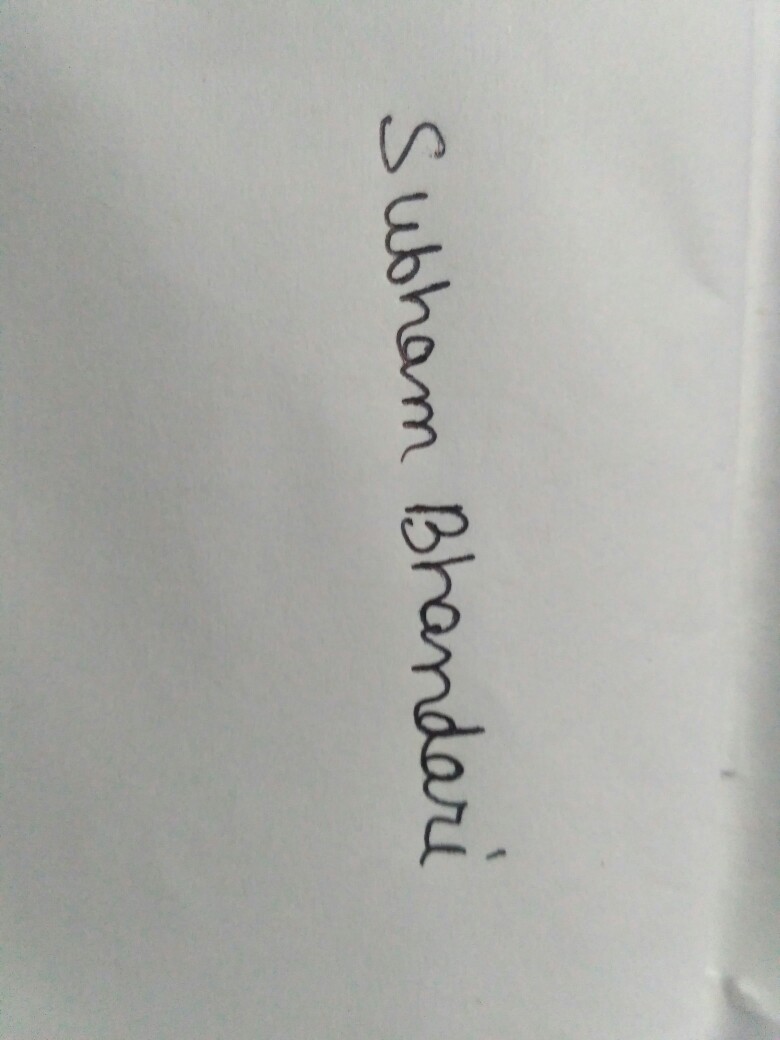 Subham Bhandari